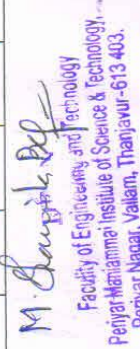 Faculty of Engineering and Technology
Periyar Maniammai Institute of Science & Technology,
Periyar Nagar, Vallam, Thanjavur-613 403.